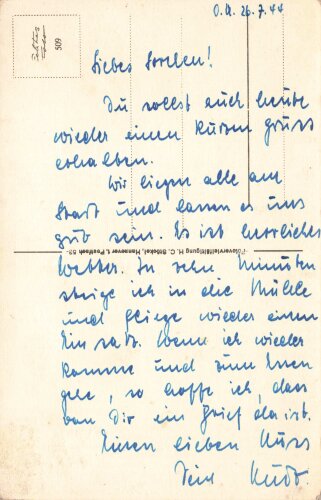 O.U. 26.7.44
509
Liebes Lorchen!
Du sollst auch heute
wieder einen kurzen Gruss
erhalten.
Wir liegen alle am
Start und lassen es uns
gut sein. Es ist herrliches
Wetter. In zehn Minuten
steige ich in die Mühle
und fliege wieder einen
Einsatz. Wenn ich wieder
komme und zum Essen
gehe, so hoffe ich, dass
von Dir ein Brief da ist.
Einen lieben Kuss
Dein
H. C. Stöckel, Hannover 1, Postfach